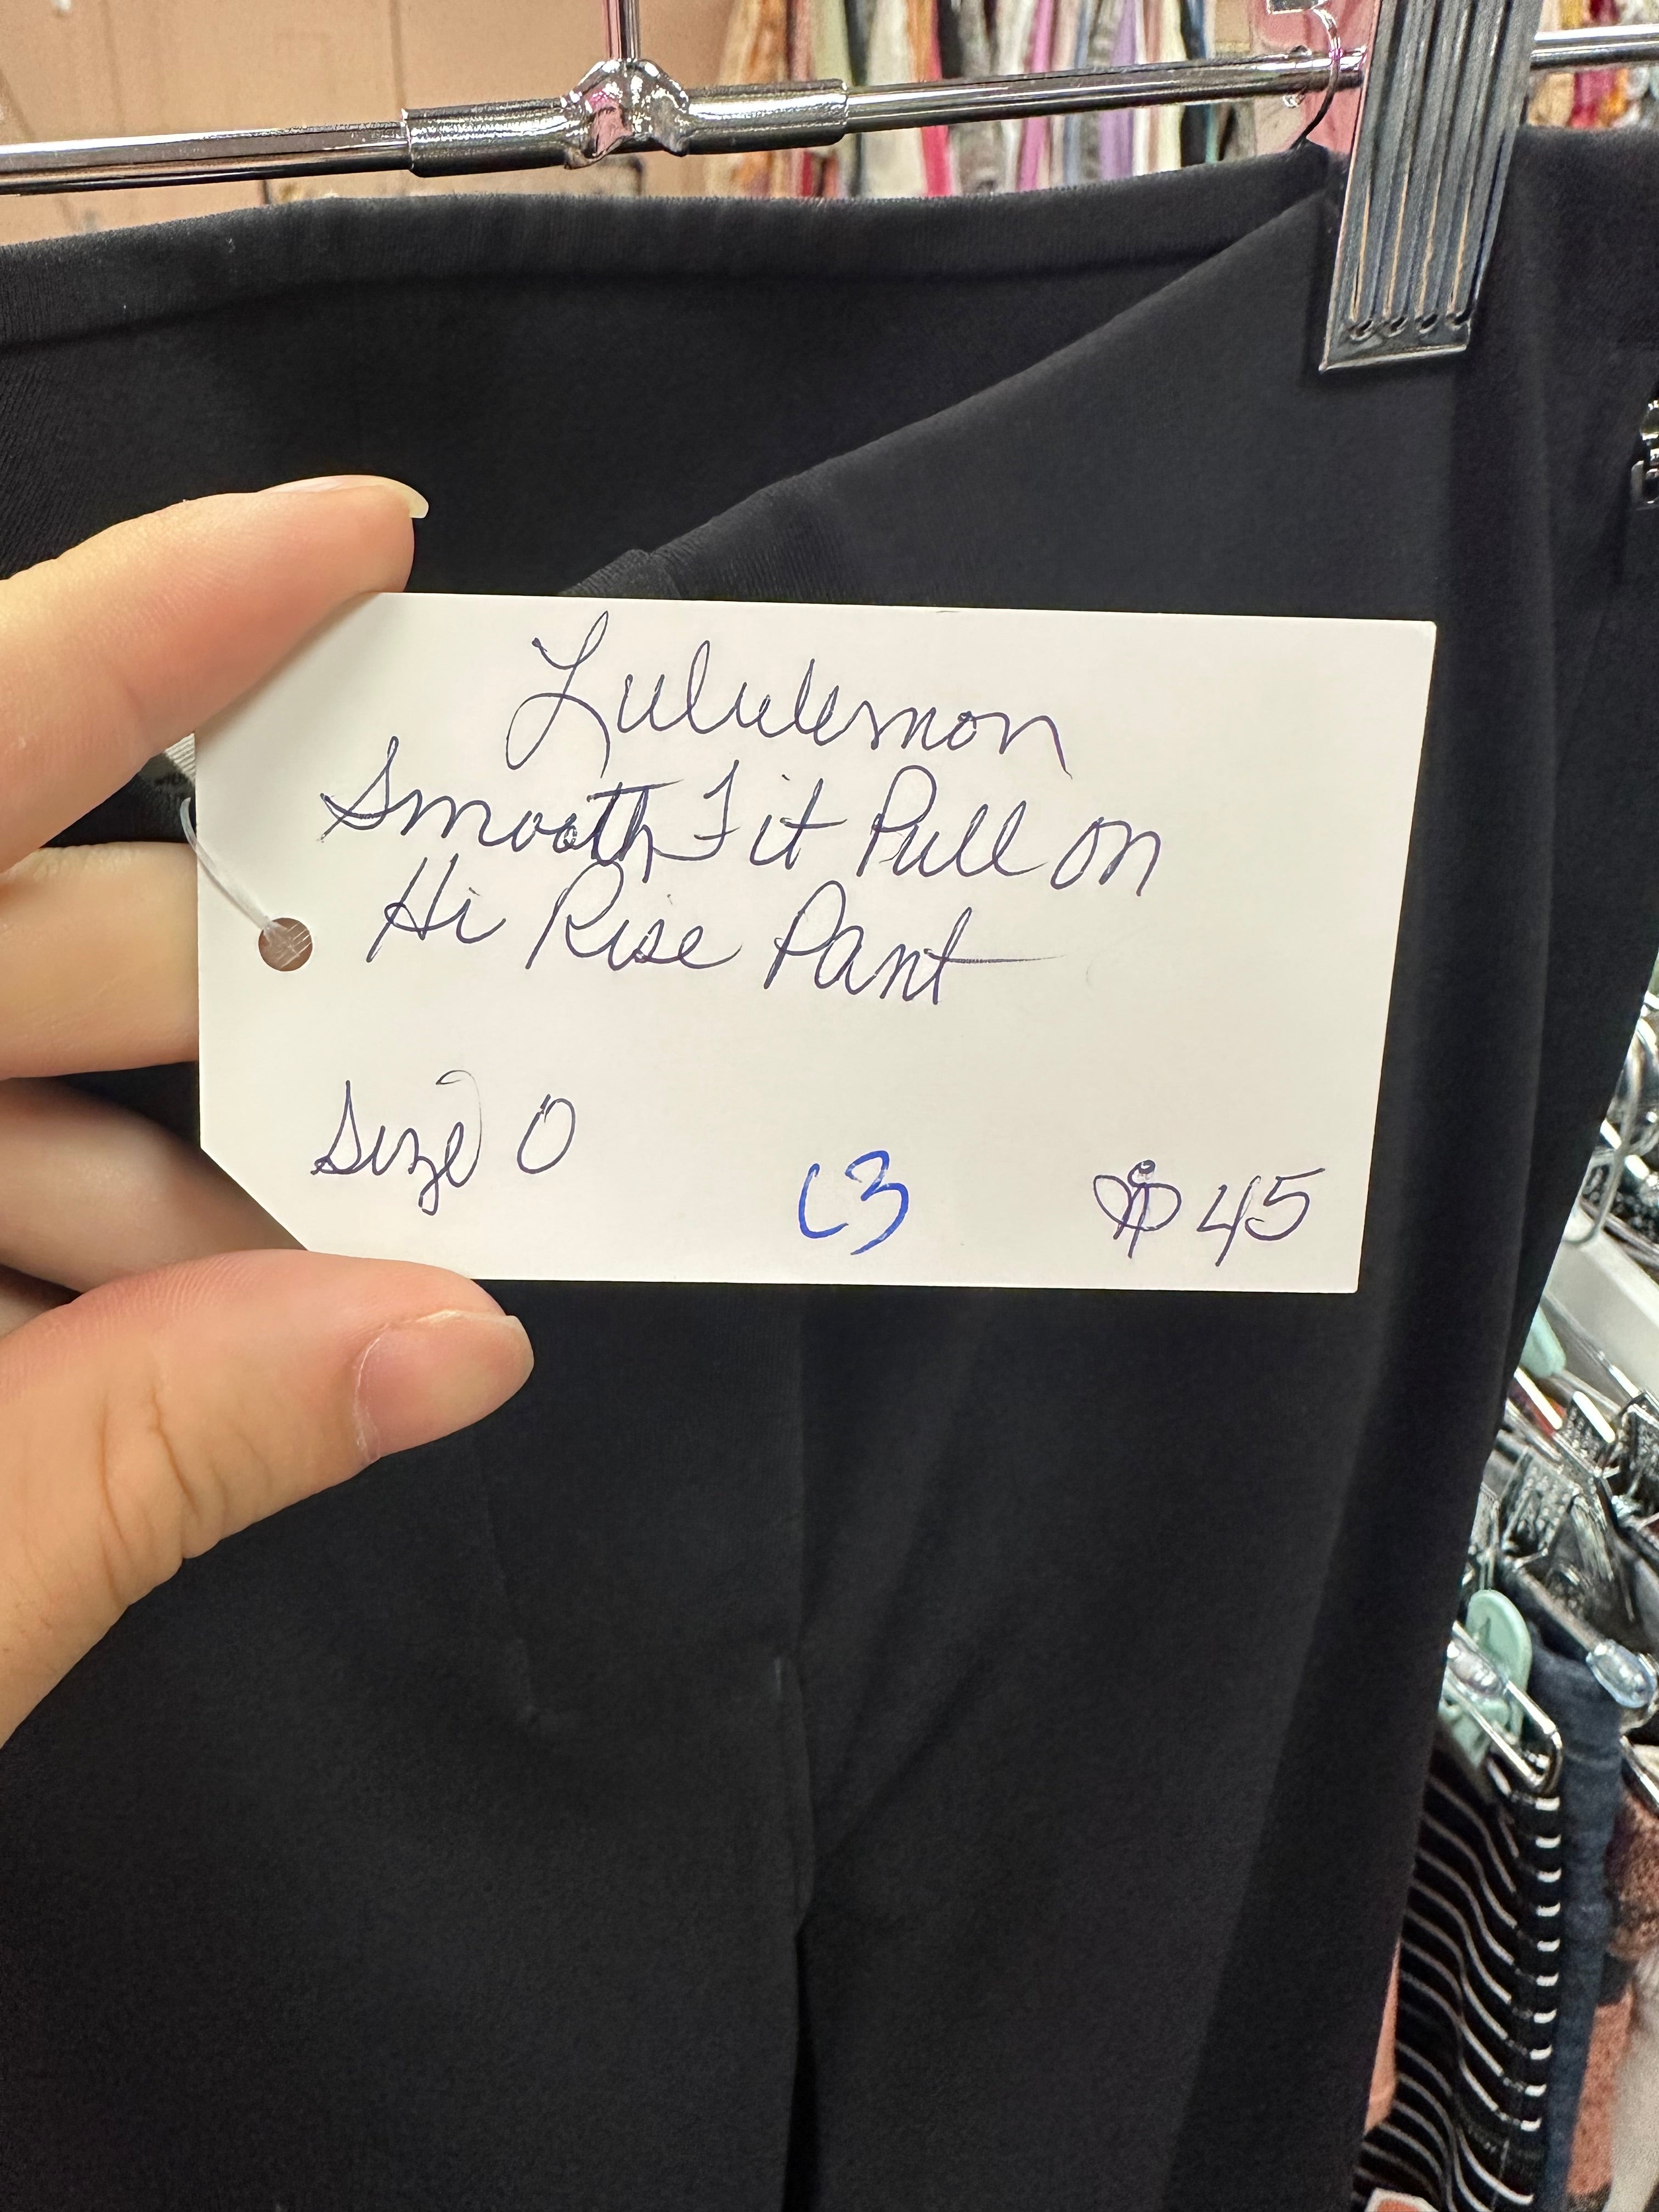 Lululemon
Smooth Fit Pull on
Hi Rise Pant
Size 0 L3 $45